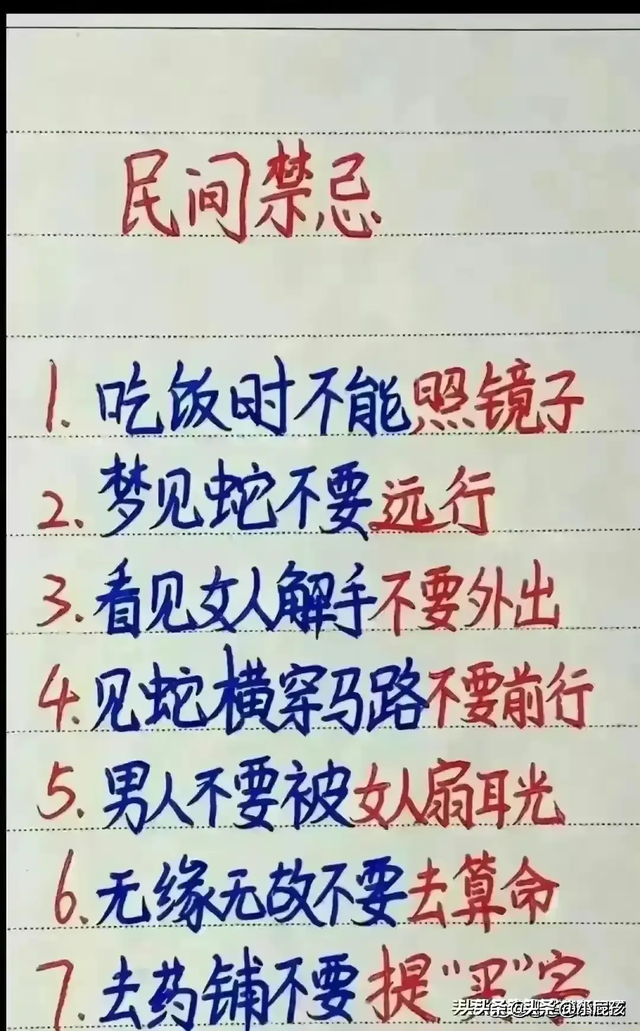 民间禁忌
1. 吃饭时不能照镜子
2. 梦见蛇不要远行
3. 看见女人解手不要外出
4. 见蛇横穿马路不要前行
5. 男人不要被女人扇耳光
6. 无缘无故不要去算命
7. 去药铺不要提"买"字